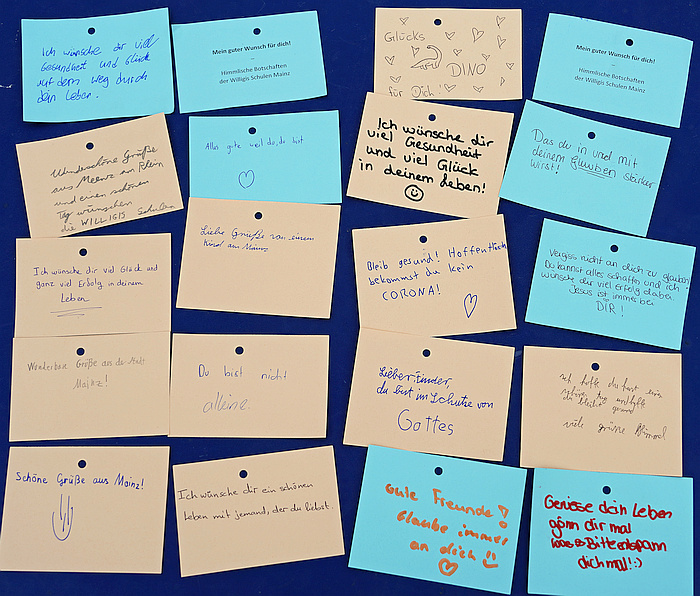 Ich wünsche dir viel
Gesundheit und Glück
auf dem Weg durch
dein Leben.
Mein guter Wunsch für dich!
Himmlische Botschaften
der Willigis Schulen Mainz
Glücks
DINO
für Dich!
Mein guter Wunsch für dich!
Himmlische Botschaften
der Willigis Schulen Mainz
Wunderschöne Grüße
aus Meenz am Rhein
und einen schönen
Tag wünschen
die WILLIGIS Schulen
Alles gute weil du, du bist
Ich wünsche dir
viel Gesundheit
und viel Glück
in deinem Leben!
Das du in und mit
deinem Glauben stärker
wirst!
Ich wünsche dir viel Glück und
ganz viel Erfolg in deinem
Leben
Liebe Grüße von einem
Kind aus Mainz
Bleib gesund! Hoffentlich
bekommst du kein
CORONA!
Vergiss nicht an dich zu glauben
Du kannst alles schaffen und ich
wünsche dir viel Erfolg dabei.
Jesus ist immer bei
DIR!
Wunderbare Grüße aus der Stadt
Mainz!
Du bist nicht
alleine.
Lieber Finder,
du bist im Schutze von
Gottes
ich hoffe du hast einen
schönen tag und hoffe
du bleibst gesund
viele grüsse
Schöne Grüße aus Mainz!
Ich wünsche dir ein schönen
Leben mit jemand, der du liebst.
Gute Freunde!
Glaube immer
an dich
Geniese dein Leben
gönn dir mal
was Bitte entspann
dich mal! :)